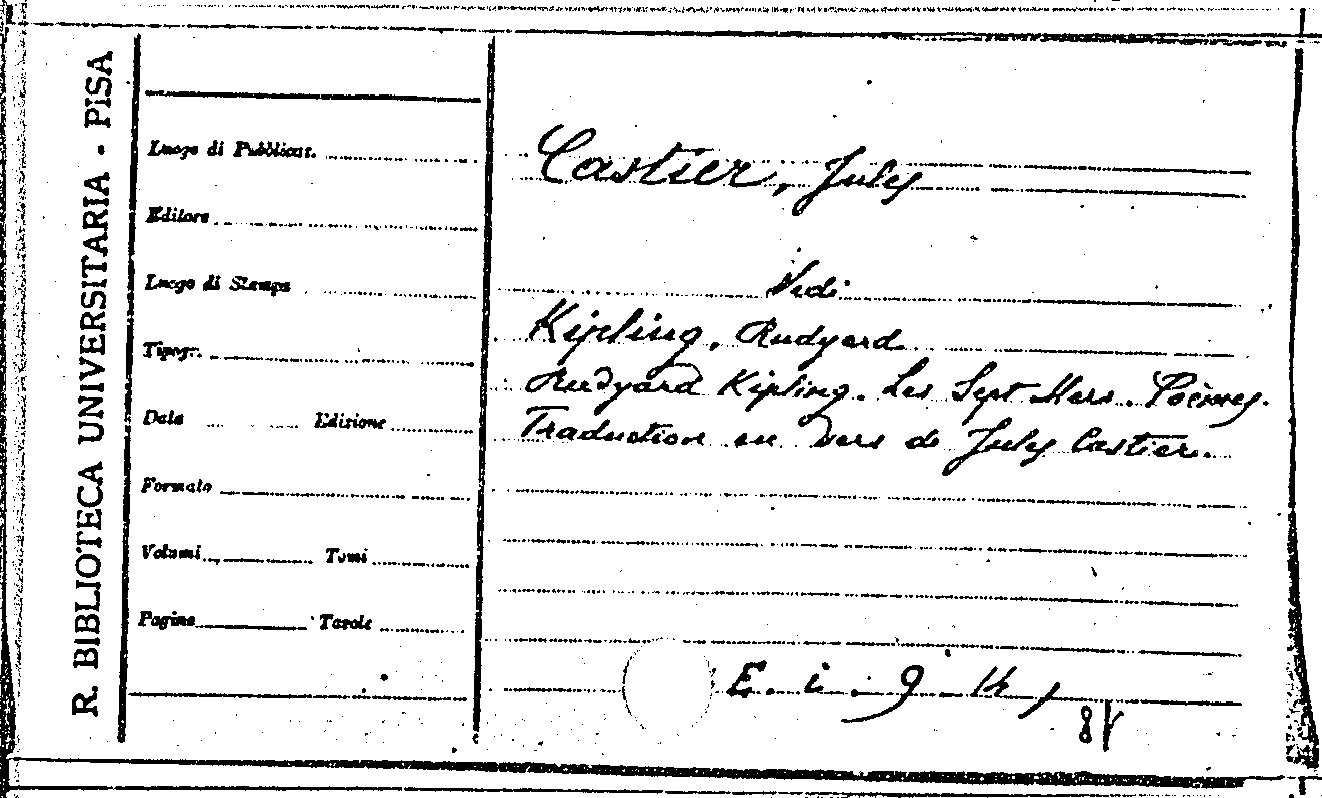 R. BIBLIOTECA UNIVERSITARIA - PISA
Luogo di Pubblicaz.
Editore
Luogo di Stampa
Tipogr.
Data Edizione
Formato
Volumi Tomi
Pagine Tavole
Castier, July
Vedi
Kipling, Rudyard
Rudyard Kipling. Les Sept Mers. Poèmes.
Traduction en vers de July Castier.
E. i. 9. 14